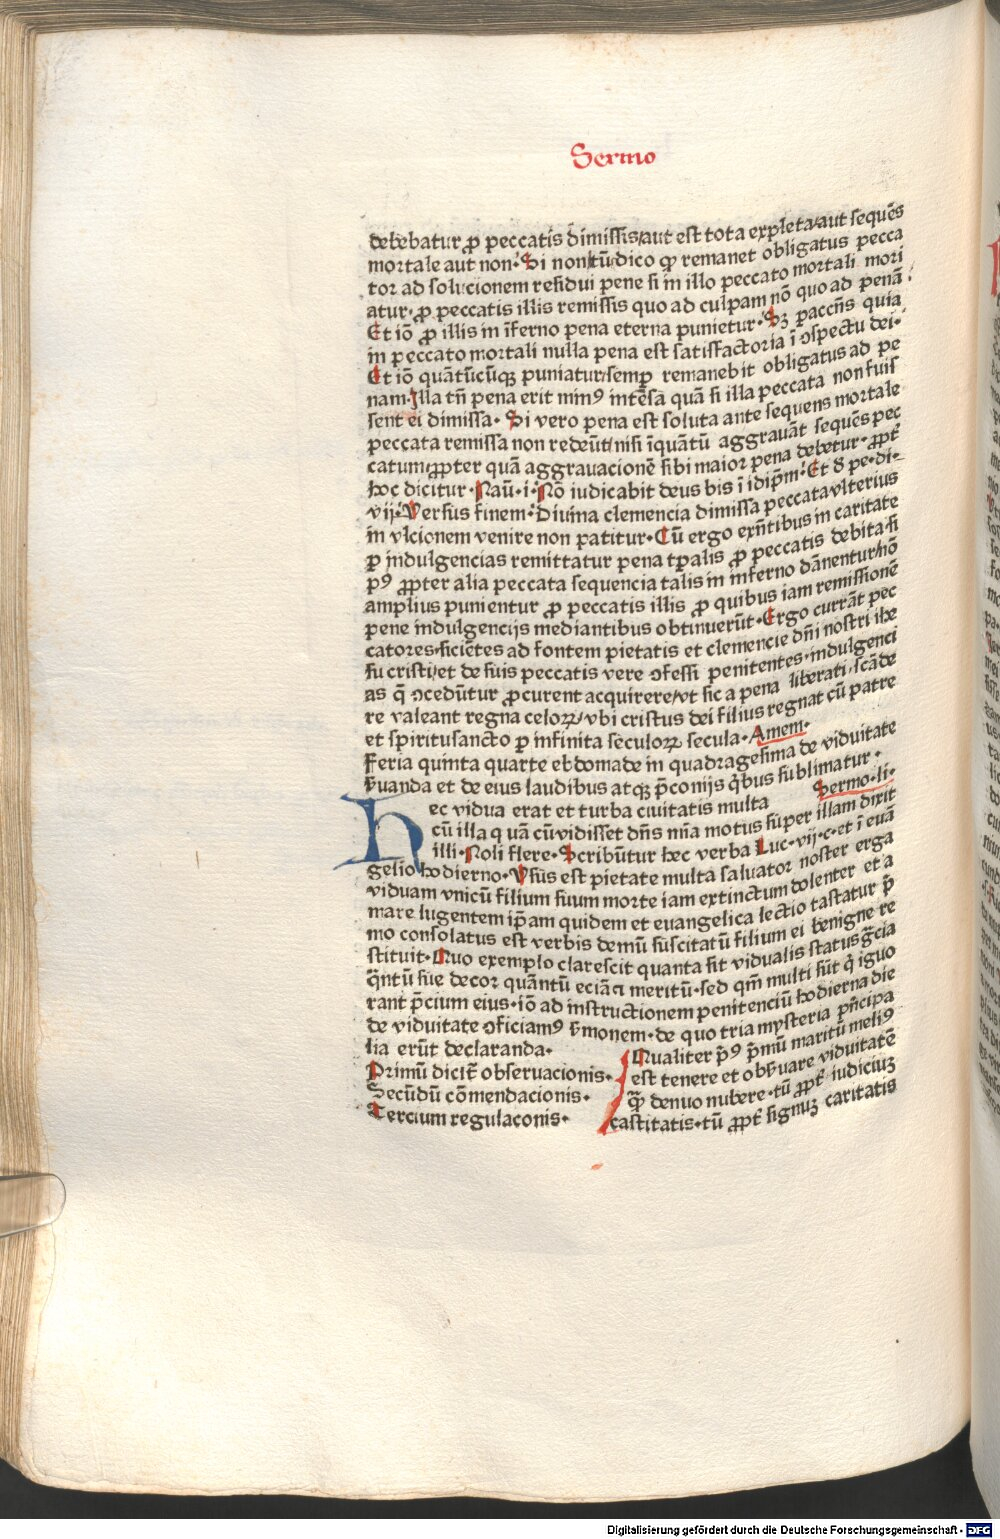 Sermo
debebatur ꝓ peccatis dimissis/aut est tota expleta/aut sequēs
mortale aut non· Si non/tū dico ꝙ remanet obligatus pecca
tor ad solucionem residui pene si in illo peccato mortali mori
atur· ꝓ peccatis illis remissis quo ad culpam nō quo ad penā·
Et iō ꝓ illis in īferno pena eterna punietur· Sꝫ paccn̄s quia
in peccato mortali nulla pena est satisfactoria ī ɔspectu dei·
Et iō quātūcūqꝫ puniatur/semꝑ remanebit obligatus ad pe
nam· Illa tn̄ pena erit minꝰ intēsa quā si illa peccata non fuis
sent ei dimissa· Si vero pena est soluta ante sequens mortale
peccata remissa non redeūt/nisi īquātū aggravāt sequēs pec
catum/ꝓpter quā aggravacionē sibi maior pena debetur· ꝓpt̄
hoc dicitur· Naū·i· Nō iudicabit deus bis ī idip̄m· Et 8 pe·di·
vij· Versus finem· Divina clemencia dimissa peccata vlterius
in vlcionem venire non patitur· Cū ergo exn̄tibus in caritate
ꝑ indulgencias remittatur pena tp̄alis ꝓ peccatis debita· si
pꝰ ꝓpter alia peccata sequencia talis in inferno dānentur/nō
amplius punientur ꝓ peccatis illis ꝓ quibus iam remissionē
pene indulgencijs mediantibus obtinuerūt· Ergo currāt pec
catores/siciētes ad fontem pietatis et clemencie dn̄i nostri ihe
su cristi/et de suis peccatis vere ɔfessi penitentes· indulgenci
as q̄ ɔcedūtur ꝓcurent acquirere/vt sic a pena liberati· scāde
re valeant regna celoꝝ/vbi cristus dei filius regnat cū patre
et spiritusancto ꝑ infinita seculoꝝ secula· Amem·
Feria quinta quarte ebdomade in quadragesima de viduitate
s̄uanda et de eius laudibus atqꝫ p̄conijs q̄bus sublimatur·
Sermo·li·
Hec vidua erat et turba civitatis multa
cū illa q uā cū vidisset dn̄s m̄ia motus super illam dixit
illi· Noli flere· Scribūtur hec verba Luc·vij·c·et ī euā
gelio hodierno· Vsus est pietate multa salvator noster erga
viduam vnicū filium suum morte iam extinctum dolenter et a
mare lugentem ip̄am quidem et euangelica lectio tastatur p̄
mo consolatus est verbis demū suscitatū filium ei benigne re
stituit· Quo exemplo clarescit quanta sit vidualis status gr̄cia
q̄ntū sue decor quāntū eciā ei meritū· sed qm̄ multi sūt q̄ iguo
rant p̄cium eius· iō ad instructionem penitenciū hodierna die
de viduitate ɔficiamꝰ s̄monem· de quo tria mysteria pn̄cipa
lia erūt declaranda·
Primū dicit̄ observacionis·
Secūdū cōmendacionis·
Tercium regulaconis·
Qualiter p̄ꝰ p̄mū maritū meliꝰ
est tenere et obs̄uare viduitatē
q̄ꝫ denuo nubere· tū ꝓpt̄ iudiciuꝫ
castitatis· tū ꝓpt̄ signuꝫ caritatis
Digitalisierung gefördert durch die Deutsche Forschungsgemeinschaft - DFG